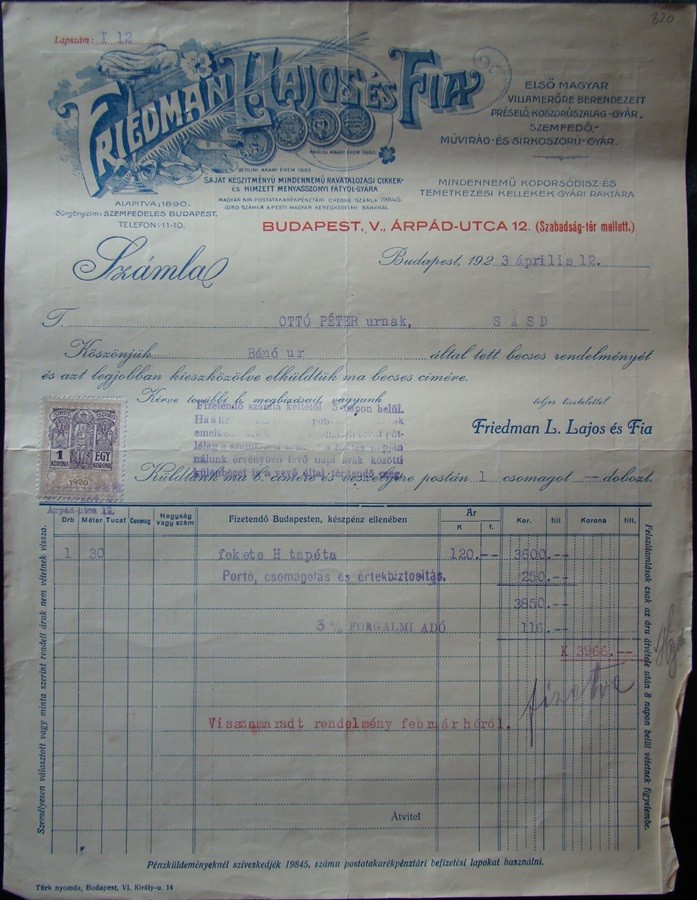 820
Lapszám: I 12
FRIEDMAN L. LAJOS ÉS FIA
ELSŐ MAGYAR
VILLAMERŐRE BERENDEZETT
PRÉSELŐ, KOSZORÚSZALAG-GYÁR,
SZEMFEDŐ,-
MŰVIRÁG-ÉS SIRKOSZORU-GYÁR.
BERLINI ARANY ÉREM 1895.
PÁRISI ARANY ÉREM 1900.
SAJÁT KÉSZITMÉNYŰ MINDENNEMŰ RAVATALOZÁSI CIKKEK-
ÉS HIMZETT MENYASSZONY FÁTYOL-GYÁRA
MAGYAR KIR. POSTATAKARÉKPÉNZTÁRI CHEQUE SZÁMLA 19845.
GIRO SZÁMLA A PESTI MAGYAR KERESKEDELMI BANKNÁL
MINDENNEMŰ KOPORSÓDISZ-ÉS
TEMETKEZÉSI KELLÉKEK GYÁRI RAKTÁRA
ALAPITVA: 1890.
Sürgönycim: SZEMFEDELES BUDAPEST.
TELEFON: 11-10.
BUDAPEST, V., ÁRPÁD-UTCA 12. (Szabadság-tér mellett.)
Számla
Budapest, 1923 április 12.
T. OTTÓ PÉTER urnak, SÁSD
Köszönjük Bénó ur által tett becses rendelményét
és azt legjobban kieszközölve elküldtük ma becses cimére.
Kérve további b. megbizásait, vagyunk
teljes tisztelettel
Fizetendő számla keltétől 5 napon belül.
Friedman L. Lajos és Fia
nálunk érvényben lévő napi árak közötti
különbözet is a vevő által térítendő meg.
1 KORONA
EGY KORONA
1920
Küldtünk ma b. cimére és veszélyére postán 1 csomagot — dobozt.
Árpád-utca 12.
Drb Méter Tucat Csomag Nagyság vagy szám Fizetendő Budapesten, készpénz ellenében Ár K f. Kor. fill. Korona fill.
1 30 fekete H tapéta 120.-- 3600.--
Portó, csomagolás és értékbiztositás. 250.--
3850.--
3 % FORGALMI ADÓ 116.--
K 3966.--
fizetve
Visszamaradt rendelmény február hóról.
Átvitel
Személyesen választott vagy minta szerint rendelt áruk nem vétetnek vissza.
Felszólamlások csak az áru átvétele után 8 napon belül vétetnek figyelembe.
Pénzküldeményeknél sziveskedjék 19845. számu postatakarékpénztári befizetési lapokat használni.
Türk nyomda, Budapest, VI. Király-u. 14